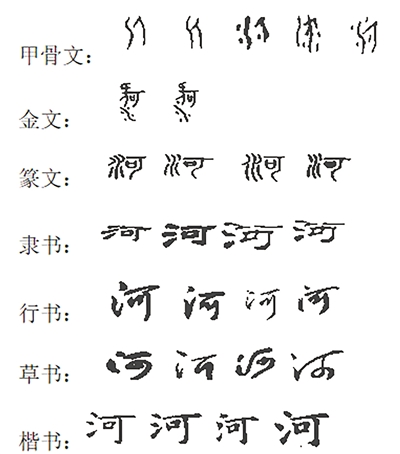 甲骨文：
金文：
篆文：河 河 河 河
隶书：河 河 河 河
行书：河 河 河 河
草书：河 河 河 河
楷书：河 河 河 河